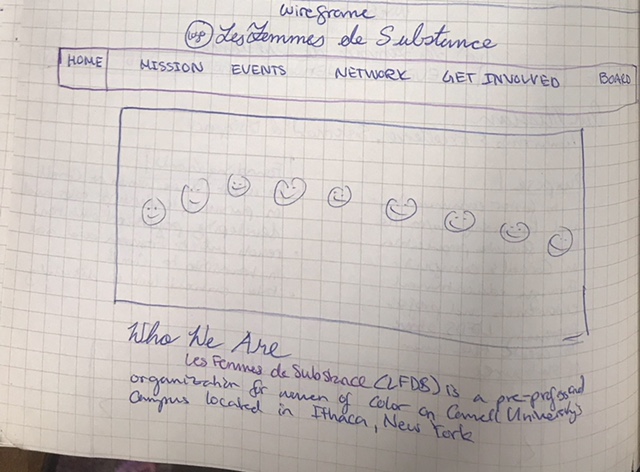 Wireframe
Logo Les Femmes de Substance
HOME MISSION EVENTS NETWORK GET INVOLVED BOARD
Who We Are
Les Femmes de Substance (LFDS) is a pre-professional
organization for women of color on Cornell University's
campus located in Ithaca, New York